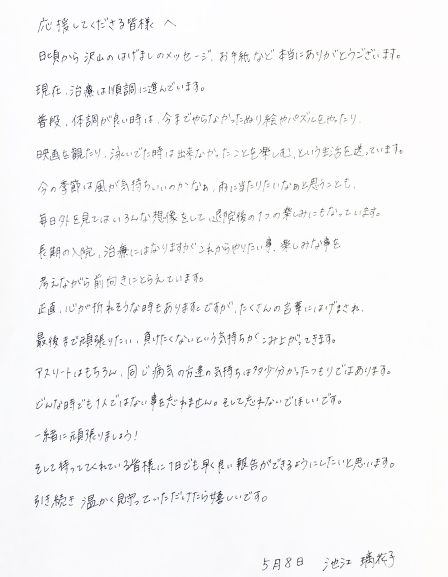 応援してくださる皆様へ
日頃から沢山のはげましのメッセージ、お手紙など本当にありがとうございます。
現在、治療は順調に進んでいます。
普段、体調が良い時は、今までやらなかったぬり絵やパズルをやったり、
映画を観たり、泳いでた時は出来なかったことを楽しむ、という生活を送っています。
今の季節は風が気持ちいいのかなぁ、雨に当たりたいなぁと思うことも、
毎日外を見てはいろんな想像をして、退院後の1つの楽しみにもなっています。
長期の入院、治療にはなりますがこれからやりたい事、楽しみな事を
考えながら前向きにとらえています。
正直、心が折れそうな時もあります。ですが、たくさんの言葉にはげまされ、
最後まで頑張りたい、負けたくないという気持ちがこみ上がってきます。
アスリートはもちろん、同じ病気の方達の気持ちは多少分かったつもりではあります。
どんな時でも1人ではない事を忘れません。そして忘れないでほしいです。
一緒に頑張りましょう!
そして待ってくれている皆様に1日でも早く良い報告ができるようにしたいと思います。
引き続き 温かく見守っていただけたら嬉しいです。
5月8日 池江 璃花子